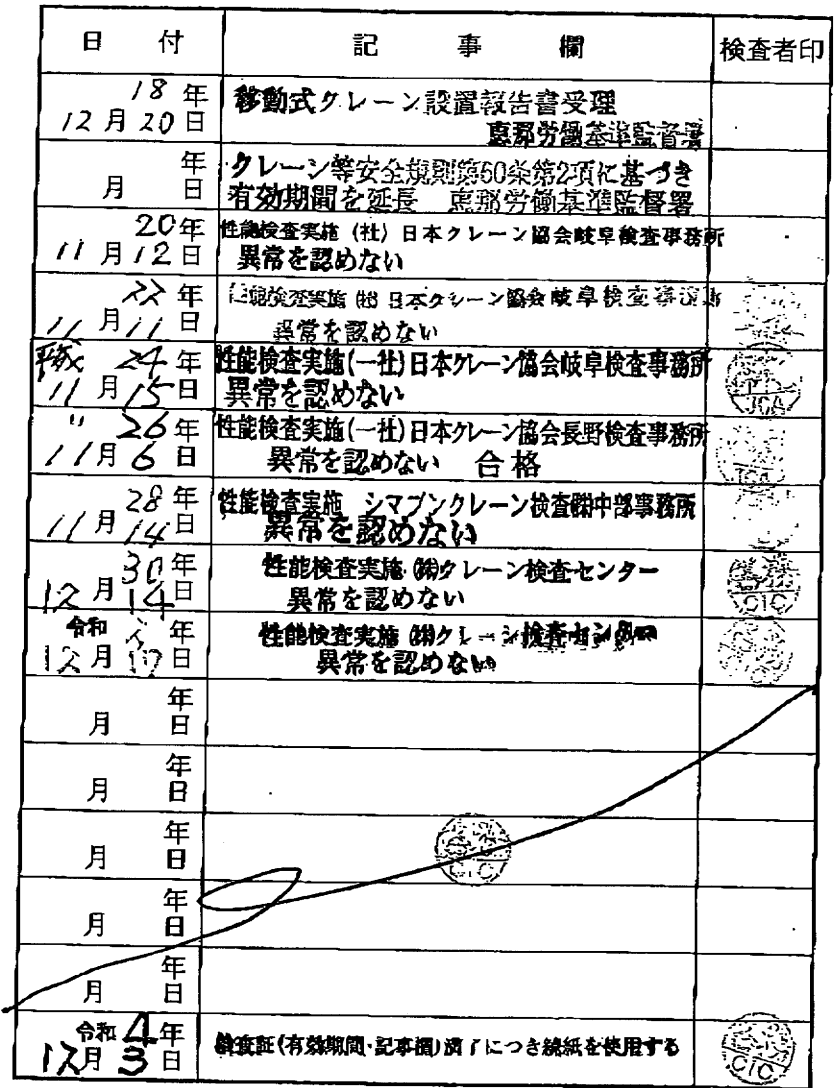 日 付 記 事 欄 検査者印
18 年
12 月 20 日
移動式クレーン設置報告書受理
恵那労働基準監督署
年
月 日
クレーン等安全規則第60条第2項に基づき
有効期間を延長 恵那労働基準監督署
20年
11 月 12 日
性能検査実施 (社) 日本クレーン協会岐阜検査事務所
異常を認めない
22 年
11 月 11 日
性能検査実施 (社) 日本クレーン協会岐阜検査事務所
異常を認めない
平成 24 年
11 月 15 日
性能検査実施(一社)日本クレーン協会岐阜検査事務所
異常を認めない
JCA
〃 26 年
11 月 6 日
性能検査実施(一社)日本クレーン協会長野検査事務所
異常を認めない 合格
JCA
28 年
11 月 14 日
性能検査実施 シマブンクレーン検査㈱中部事務所
異常を認めない
30 年
12 月 14 日
性能検査実施 ㈱クレーン検査センター
異常を認めない
CIC
令和 年
12 月 日
性能検査実施 ㈱クレーン検査センター
異常を認めない
年
月 日
年
月 日
年
月 日
CIC
年
月 日
年
月 日
令和 4 年
12月 3 日
検査証(有効期間・記事欄)満了につき続紙を使用する
CIC